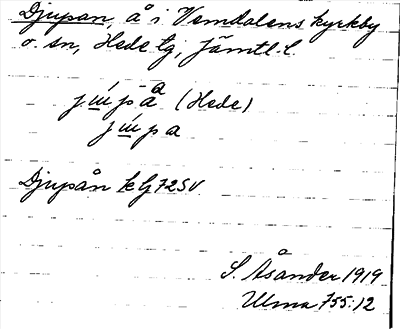 Djupan, å i Vemdalens kyrkby
o. sn, Hede tg, Jämtl. l.
(Hede)
Djupån kg 72SV
S. Åsander 1919
Ulma 755:12